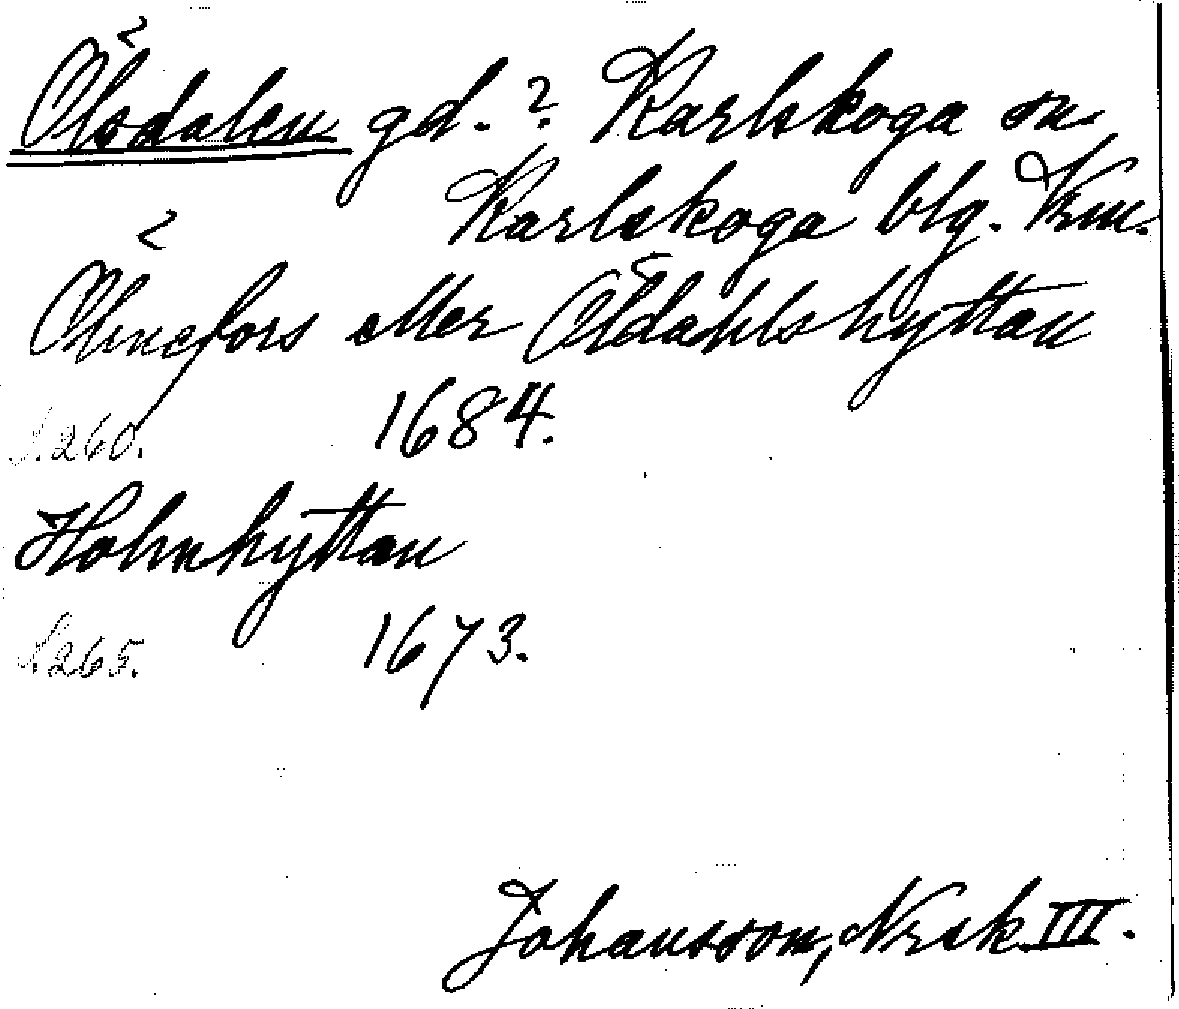 Ölsdalen gd.? Karlskoga sn
Karlskoga blg. Vrm.
Ölmefors eller Öldahlshyttan
S. 260. 1684.
Holmhyttan
S. 265. 1673.
Johansson, Nrsk III.